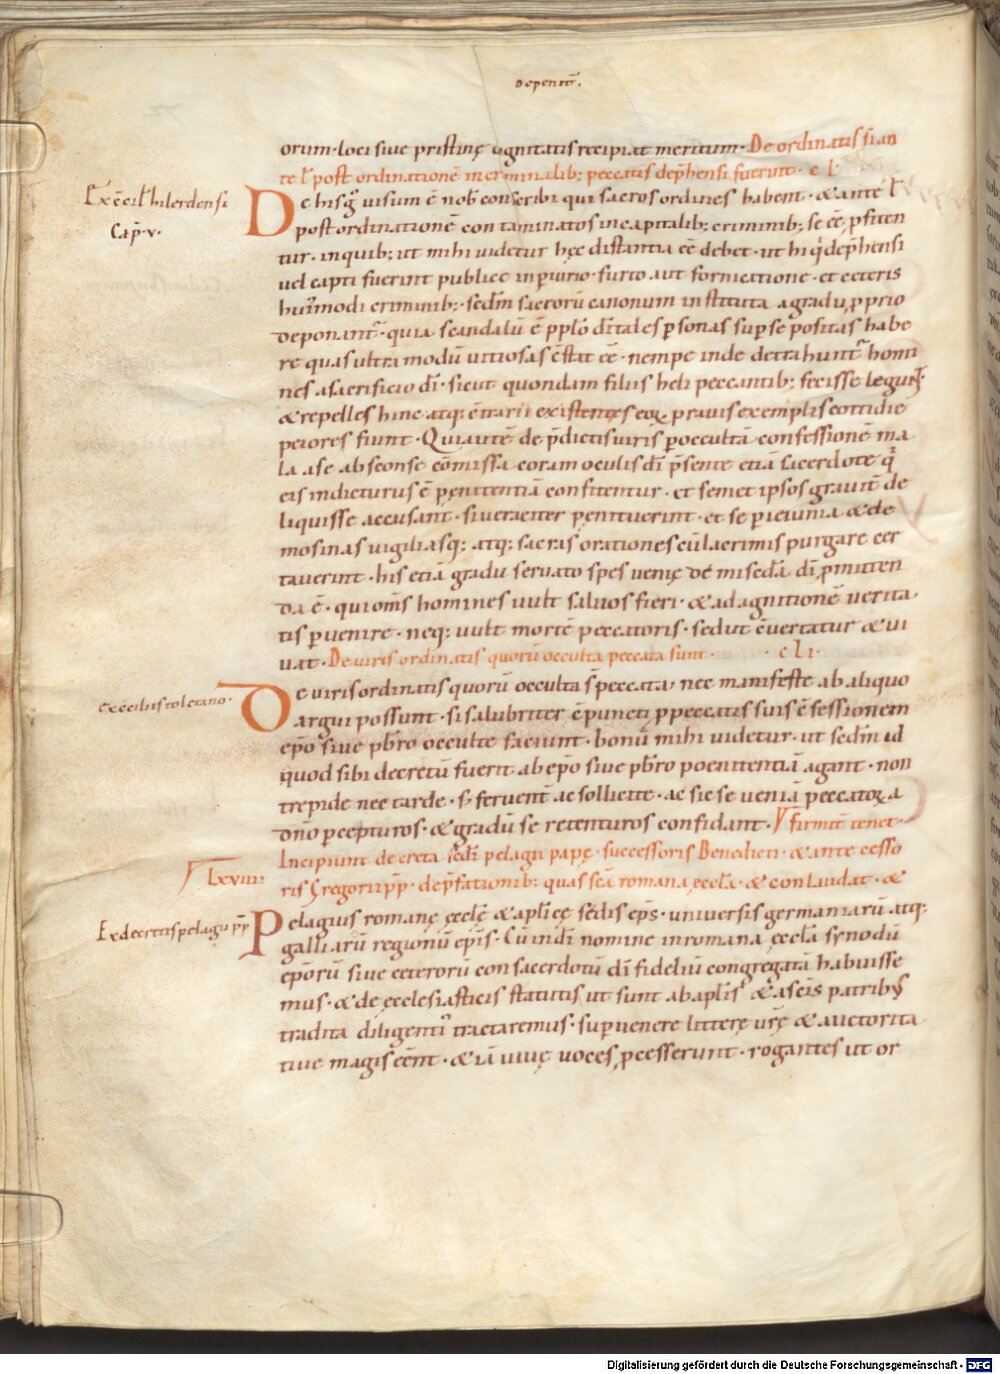 De penitẽ.
orum · loci siue pristinę dignitatis recipiat meritum · De ordinatis si an
te ł post ordinationẽ in criminalib; peccatis dep̃hensi fuerint · c l ·
Ex c̃cil̃ hilerdensi
Cap̃ · v ·
De his q̃ uisum ẽ nob̃ conscribi qui sacros ordines habent · & ante ł
post ordinationẽ contaminatos in capitalib; criminib; se eẽ p̃fiten
tur · in quib; ut mihi uidetur hęc distantia eẽ debet · ut hi q̃ dep̃hensi
uel capti fuerint publice in ꝑiurio · furto aut fornicatione · et ceteris
hui᷒modi criminib; · sedm̃ sacrorũ canonum instituta a gradu ꝓprio
deponant᷑ · quia scandalũ ẽ pp̃lo dĩ tales ꝑsonas sup se positas habe
re quas ultra modũ uitiosas c̃stat eẽ · nempe inde detrahunt᷑ homi
nes a sacrificio dĩ · sicut quondam filiis heli peccantib; fecisse legunt᷑ ·
& repelles hinc atq; c̃trarii existentes eoꝝ prauis exemplis cottidie
peiores fiunt · Qui autẽ de p̃dictis uiris ꝑ occultã confessionẽ ma
la a se absconse cõmissa coram oculis dĩ p̃sente etiã sacerdote q̃
eis indicturus ẽ pęnitentiã confitentur · et semet ipsos grauit̃ de
liquisse accusant · si ueraciter pęnituerint · et se ꝑ ieiunia & ele
mosinas uigiliasq; atq; sacras orationes cũ lacrimis purgare cer
tauerint · his etiã gradu seruato spes uenię de mis̃cda dĩ ꝓmitten
da ẽ · qui om̃s homines uult saluos fieri · & ad agnitionẽ uerita
tis ꝑuenire · neq; uult mortẽ peccatoris · sed ut c̃uertatur & ui
uat · De uiris ordinatis quorũ occulta peccata sunt · c l i ·
ex c̃cilio toletano ·
De uiris ordinatis quorũ occulta s̃ peccata nec manifeste ab aliquo
argui possunt · si salubriter c̃puncti ꝓ peccatis suis c̃fessionem
ep̃o siue pb̃ro occulte faciunt · bonũ mihi uidetur · ut sedm̃ id
quod sibi decretũ fuerit ab ep̃o siue pb̃ro poenitentiã agant · non
trepide nec tarde · s; feruent̃ ac sollicite · ac sic se ueniã peccatoꝝ a
dñο ꝑcepturos · & gradũ se retenturos confidant · firmit̃ tenet ·
LXVIIII
Incipiunt decreta sc̃di pelagii papę · successoris Benedicti · & antecesso
ris Gregorii pp̃ · de p̃fationib; quas sc̃a romana ęccl̃a & conlaudat · &
Ex decretis pelagii pp̃
Pelagius romanę ęccl̃ę & apl̃icę sedis ep̃s · uniuersis germaniarũ atq;
galliarũ regionũ ep̃is · Cũ in dĩ nomine in romana ęccl̃a synodũ
ep̃orũ siue ceterorũ consacerdotũ dĩ fideliũ congregatã habuisse
mus · & de ecclesiasticis statutis ut sunt ab apl̃is & a sc̃is patribus
tradita diligenti᷒ tractaremus · supuenere litterę urę̃ & auctorita
tiue magis c̃ent · & iã uiuę uoces ꝓcesserunt · rogantes ut or
Digitalisierung gefördert durch die Deutsche Forschungsgemeinschaft · DFG